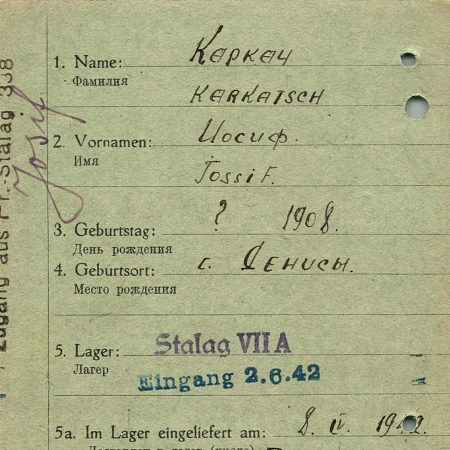 1. Name: Каркач
Фамилия
KARKATSCH
2. Vornamen: Иосиф.
Имя
Jossif.
3. Geburtstag: ? 1908.
День рождения
4. Geburtsort: с. Денисы.
Место рождения
5. Lager: Stalag VII A
Лагерь
Eingang 2.6.42
5a. Im Lager eingeliefert am: 8. IV. 1942.
Zugang aus Fr.-Stalag 338
Josif